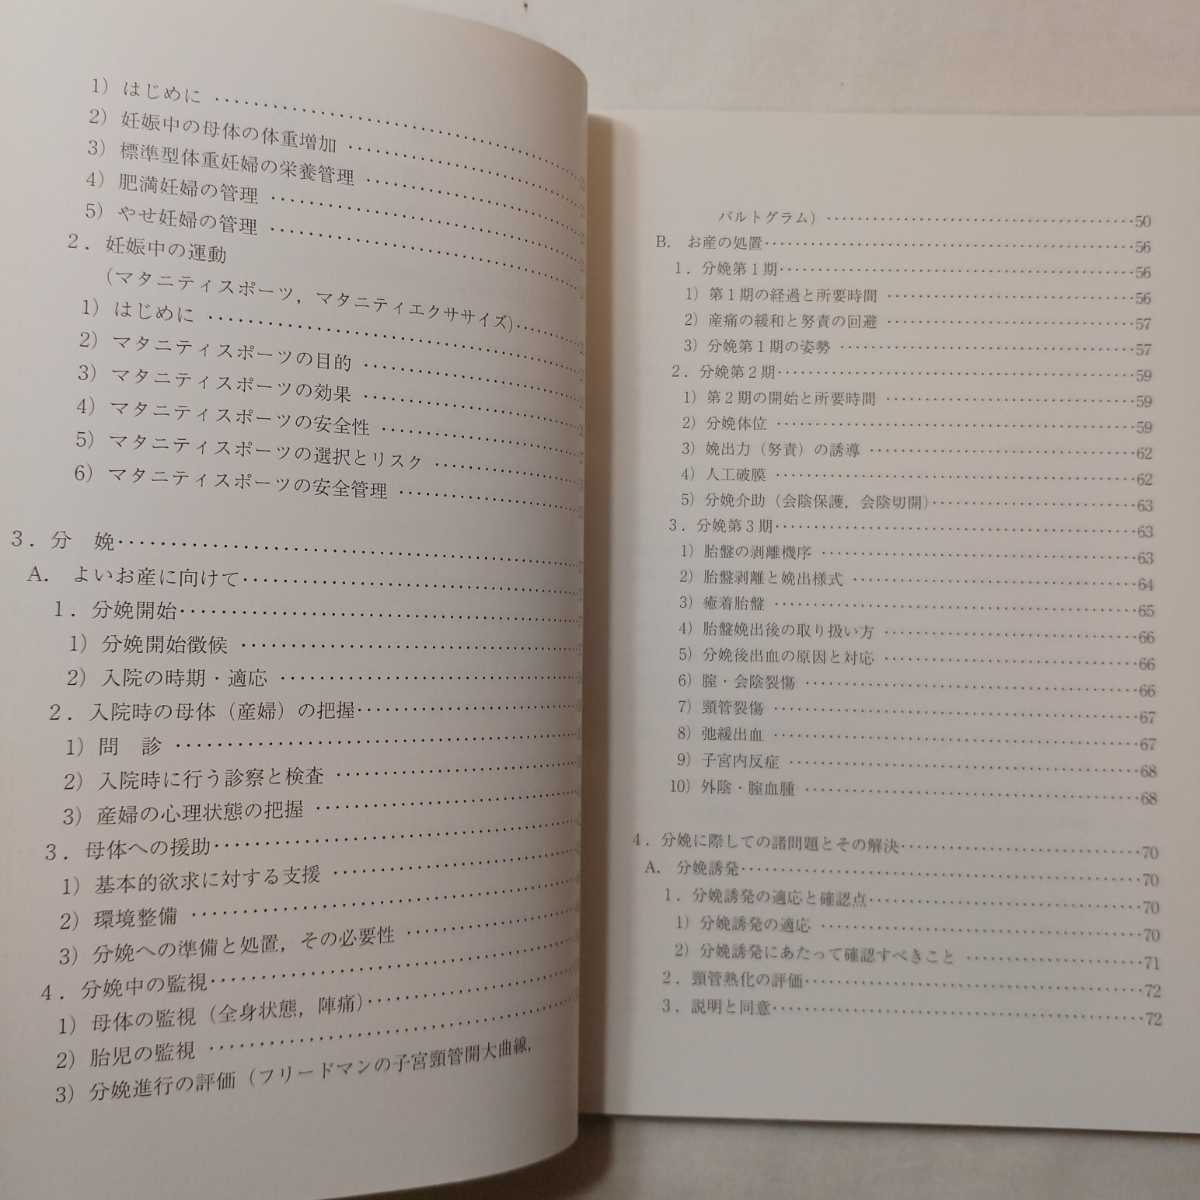 1）はじめに
2）妊娠中の母体の体重増加
3）標準型体重妊婦の栄養管理
4）肥満妊婦の管理
5）やせ妊婦の管理
2．妊娠中の運動
（マタニティスポーツ，マタニティエクササイズ）
1）はじめに
2）マタニティスポーツの目的
3）マタニティスポーツの効果
4）マタニティスポーツの安全性
5）マタニティスポーツの選択とリスク
6）マタニティスポーツの安全管理
3．分　娩
A.　よいお産に向けて
1．分娩開始
1）分娩開始徴候
2）入院の時期・適応
2．入院時の母体（産婦）の把握
1）問　診
2）入院時に行う診察と検査
3）産婦の心理状態の把握
3．母体への援助
1）基本的欲求に対する支援
2）環境整備
3）分娩への準備と処置，その必要性
4．分娩中の監視
1）母体の監視（全身状態，陣痛）
2）胎児の監視
3）分娩進行の評価（フリードマンの子宮頸管開大曲線，
パルトグラム）50
B.　お産の処置56
1．分娩第1期56
1）第1期の経過と所要時間 56
2）産痛の緩和と努責の回避 57
3）分娩第1期の姿勢 57
2．分娩第2期59
1）第2期の開始と所要時間 59
2）分娩体位 59
3）娩出力（努責）の誘導 62
4）人工破膜 62
5）分娩介助（会陰保護，会陰切開）63
3．分娩第3期63
1）胎盤の剥離機序 63
2）胎盤剥離と娩出様式 64
3）癒着胎盤 65
4）胎盤娩出後の取り扱い方 66
5）分娩後出血の原因と対応 66
6）腟・会陰裂傷 66
7）頸管裂傷 67
8）弛緩出血 67
9）子宮内反症 68
10）外陰・腟血腫 68
4．分娩に際しての諸問題とその解決70
A.　分娩誘発70
1．分娩誘発の適応と確認点70
1）分娩誘発の適応 70
2）分娩誘発にあたって確認すべきこと 71
2．頸管熟化の評価72
3．説明と同意72